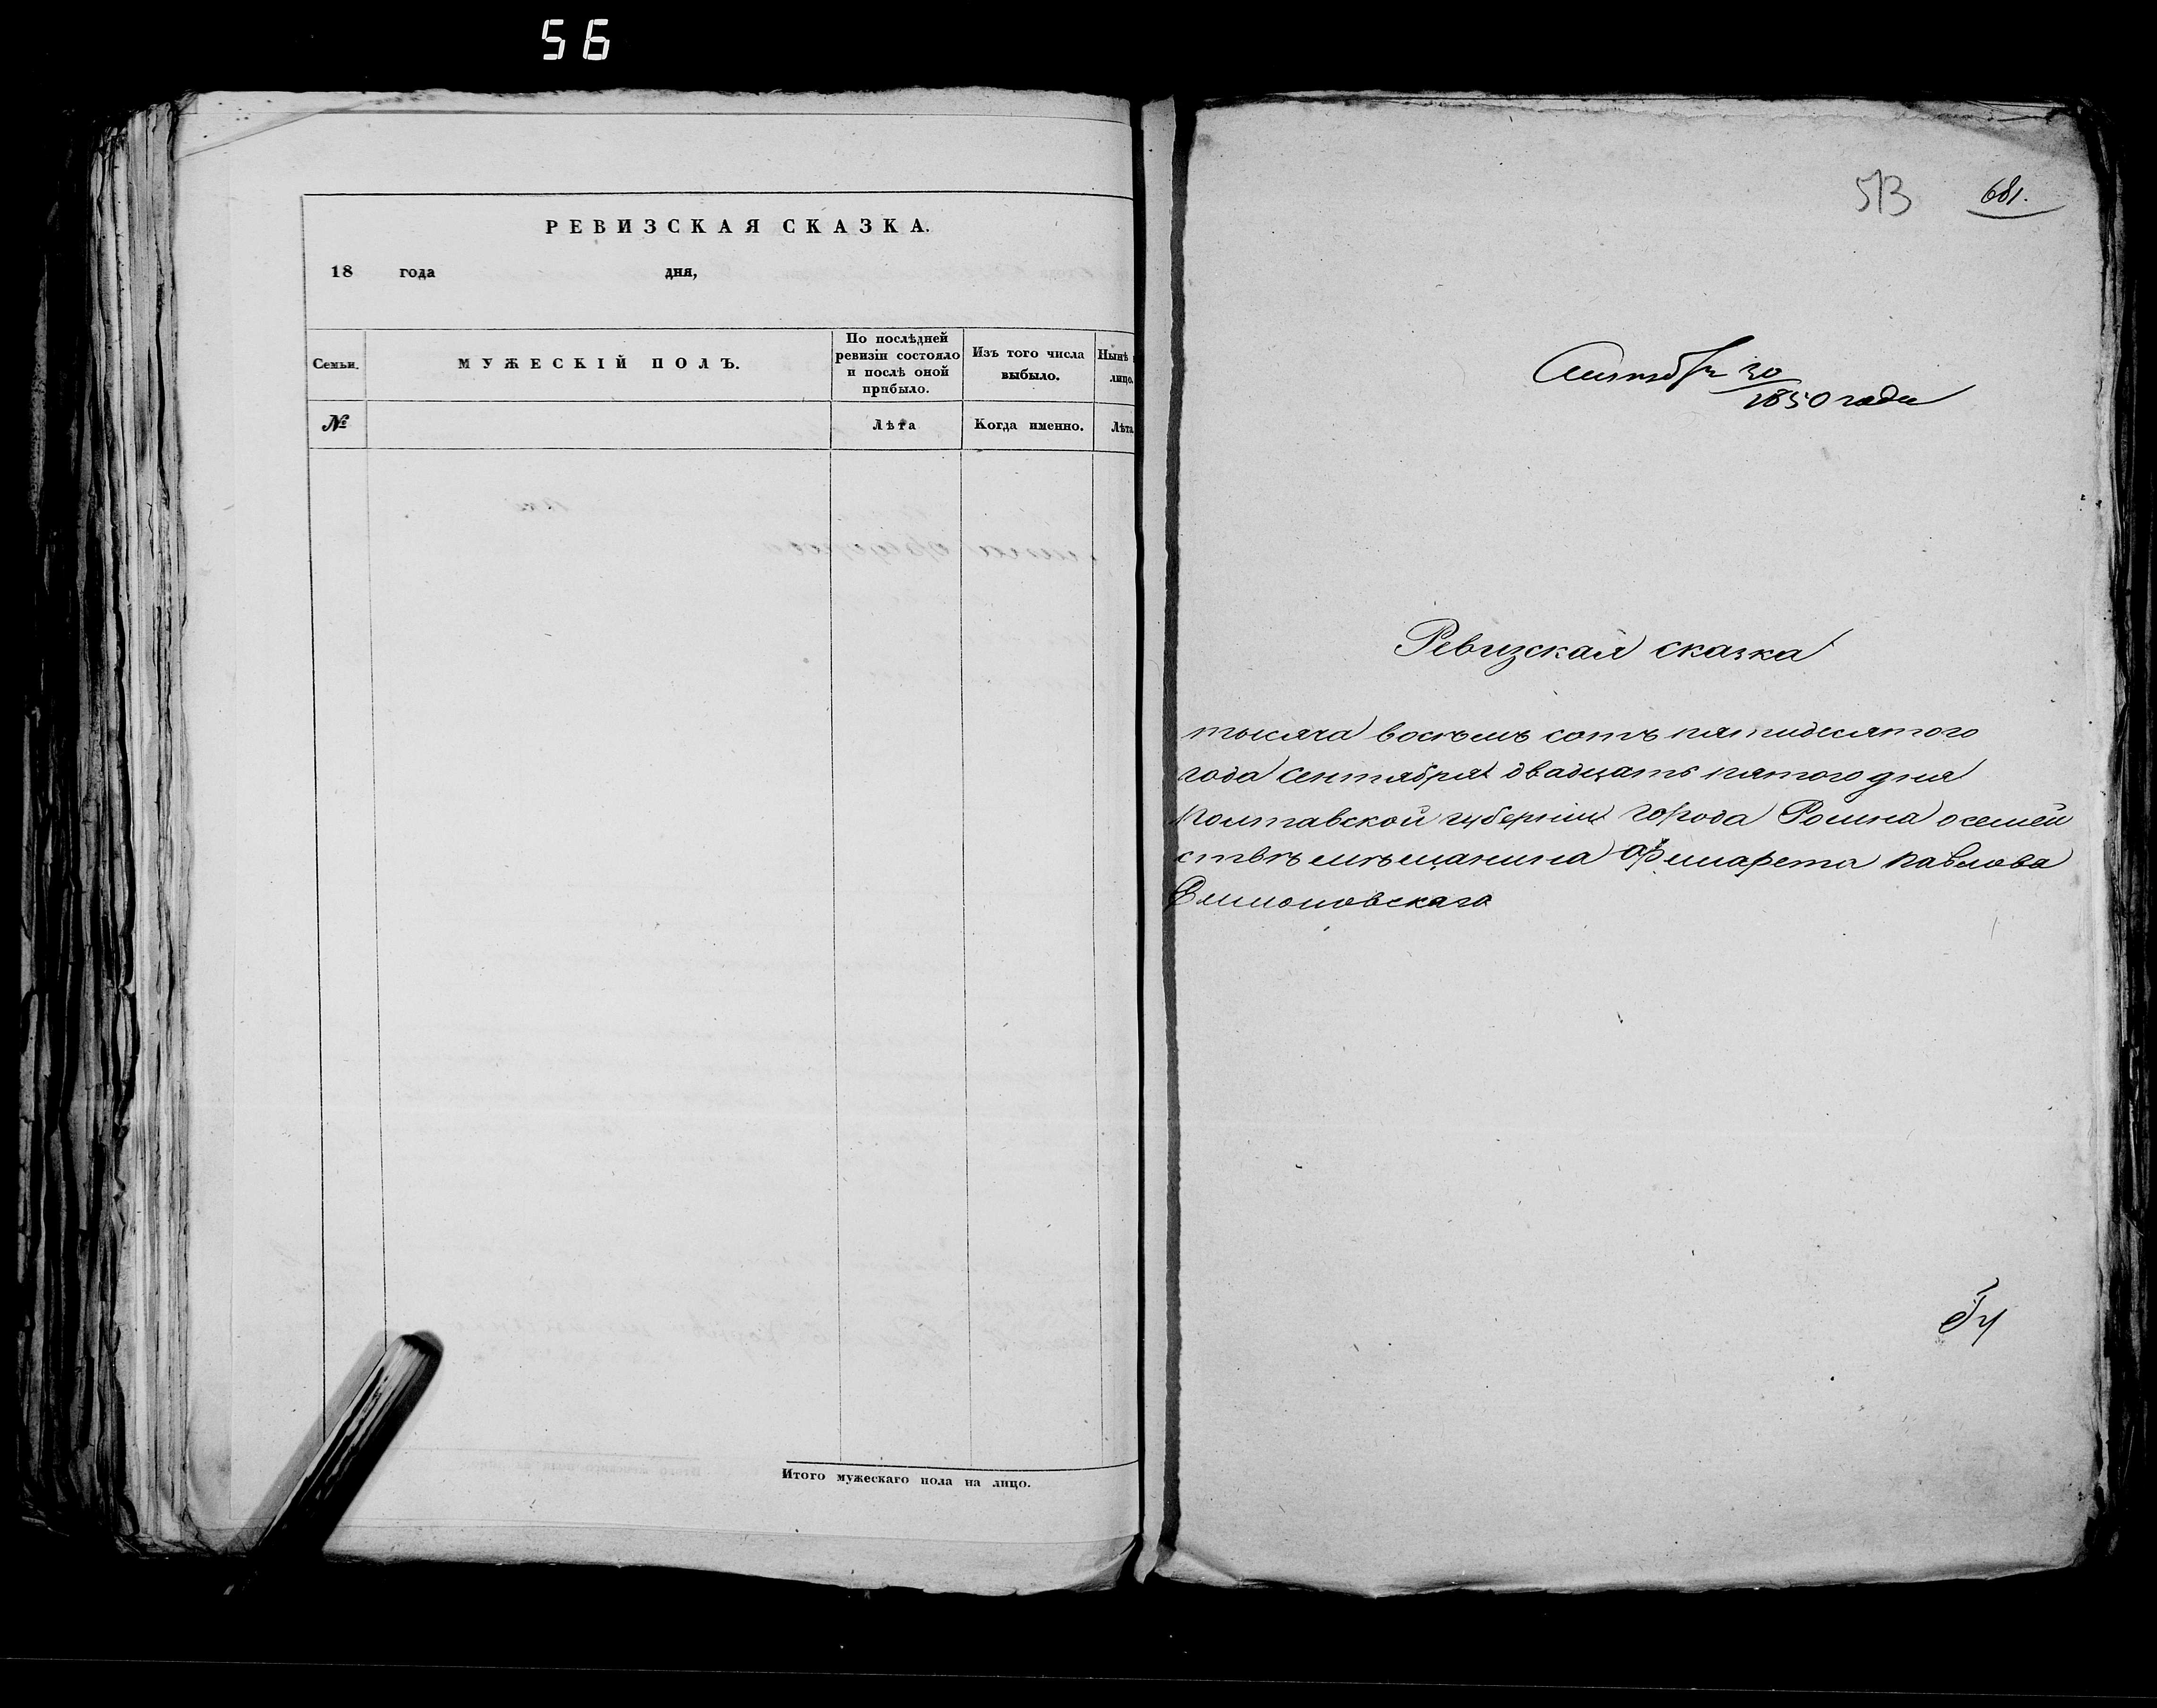 56
РЕВИЗСКАЯ СКАЗКА.
18 года дня,
Семьи.
МУЖЕСКІЙ ПОЛЪ.
По послѣдней
ревизіи состояло
и послѣ оной
прибыло.
Изъ того числа
выбыло.
Нынѣ
лицо.
№
Лѣта
Когда именно.
Лѣта
Итого мужескаго пола на лицо.
513
681.
30
1850 года
Ревизская сказка
тысяча восѣмъ сотъ пятидесятого
года Сентября двадцать пятого дня
Полтавской губерніи города Ромна о семей
ствѣ мѣщанина Филарета Павлова